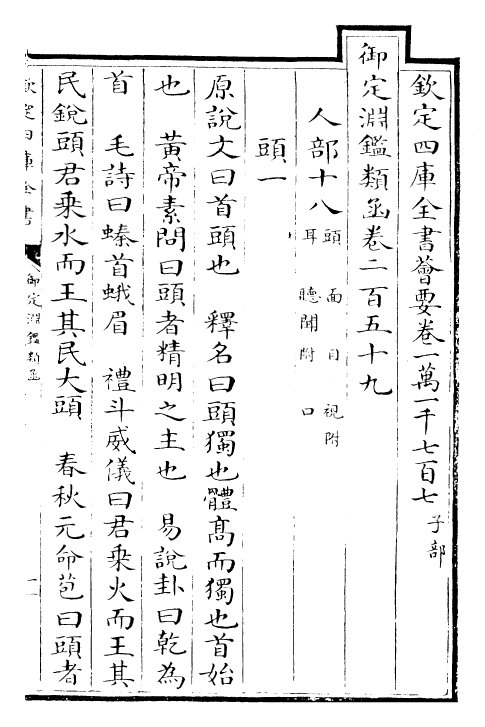 欽定四庫全書薈要卷一萬一千七百七 子部
御定淵鑑類函卷二百五十九
人部十八 頭 面 目 視附
耳 聽聞附 口
頭一
原說文曰首頭也 釋名曰頭獨也體髙而獨也首始
也 黄帝素問曰頭者精明之主也 易說卦曰乾為
首 毛詩曰螓首蛾眉 禮斗威儀曰君乗火而王其
民銳頭君乗水而王其民大頭 春秋元命苞曰頭者
欽定四庫全書
御定淵鑑類函